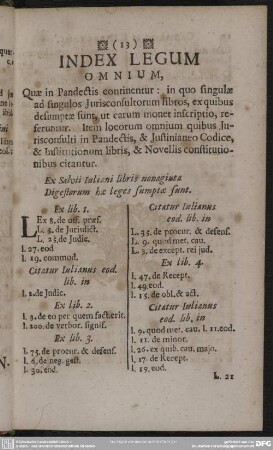 (13)
INDEX LEGUM
OMNIUM,
Quæ in Pandectis continentur: in quo singulæ
ad singulos Jurisconsultorum libros, ex quibus
desumptæ sunt, ut earum monet inscriptio, re-
feruntur. Item locorum omnium quibus Ju-
risconsulti in Pandectis, & Justinianeo Codice,
& Institutionum libris, & Novellis constitutio-
nibus citantur.
Ex Salvii Juliani libris nonaginta
Digestorum hæ leges sumptæ sunt.
Ex lib. 1.
Ex 8. de off. præs.
L. 5. de Jurisdict.
L. 23. de Judic.
l. 27. eod
l. 19. commod.
Citatur Iulianus eod.
lib. in
l. 2. de Judic.
Ex lib. 2.
l. 3. de eo per quem fact. erit.
l. 200. de verbor. signif.
Ex lib. 3.
l. 75. de procur. & defens.
l. 6. de neg. gest.
l. 30. eod.
Citatur Iulianus
eod. lib. in
L. 35. de procur. & defens.
L. 9. quod met. cau.
L. 3. de except. rei jud.
Ex lib. 4.
l. 47. de Recept.
l. 49. eod.
l. 15. de obl. & act.
Citatur Iulianus
eod. lib. in
l. 9. quod met. cau. l. 11. eod.
l. 11. de minor.
l. 26. ex quib. cau. majo.
l. 17. de Recept.
l. 19. eod.
L. 21